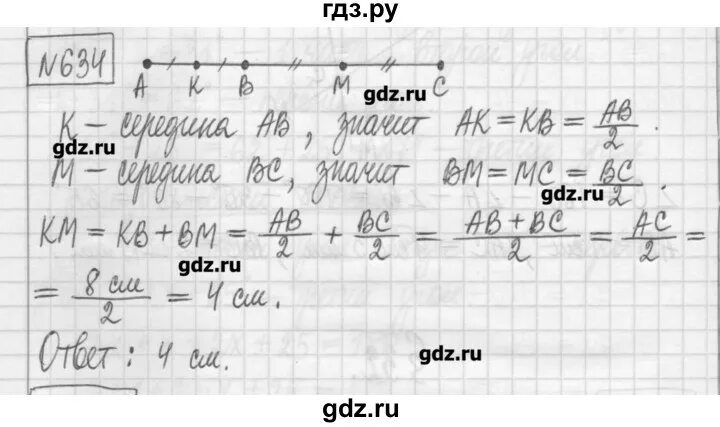 гдз.ру
N634
A K B M C
gdz.ru
K – середина AB, значит AK = KB = AB/2.
gdz.ru
M – середина BC, значит BM = MC = BC/2.
gdz.ru
KM = KB + BM = AB/2 + BC/2 = AB + BC/2 = AC/2 =
gdz.ru
= 8 см/2 = 4 см.
Ответ: 4 см.
gdz.ru
gdz.ru